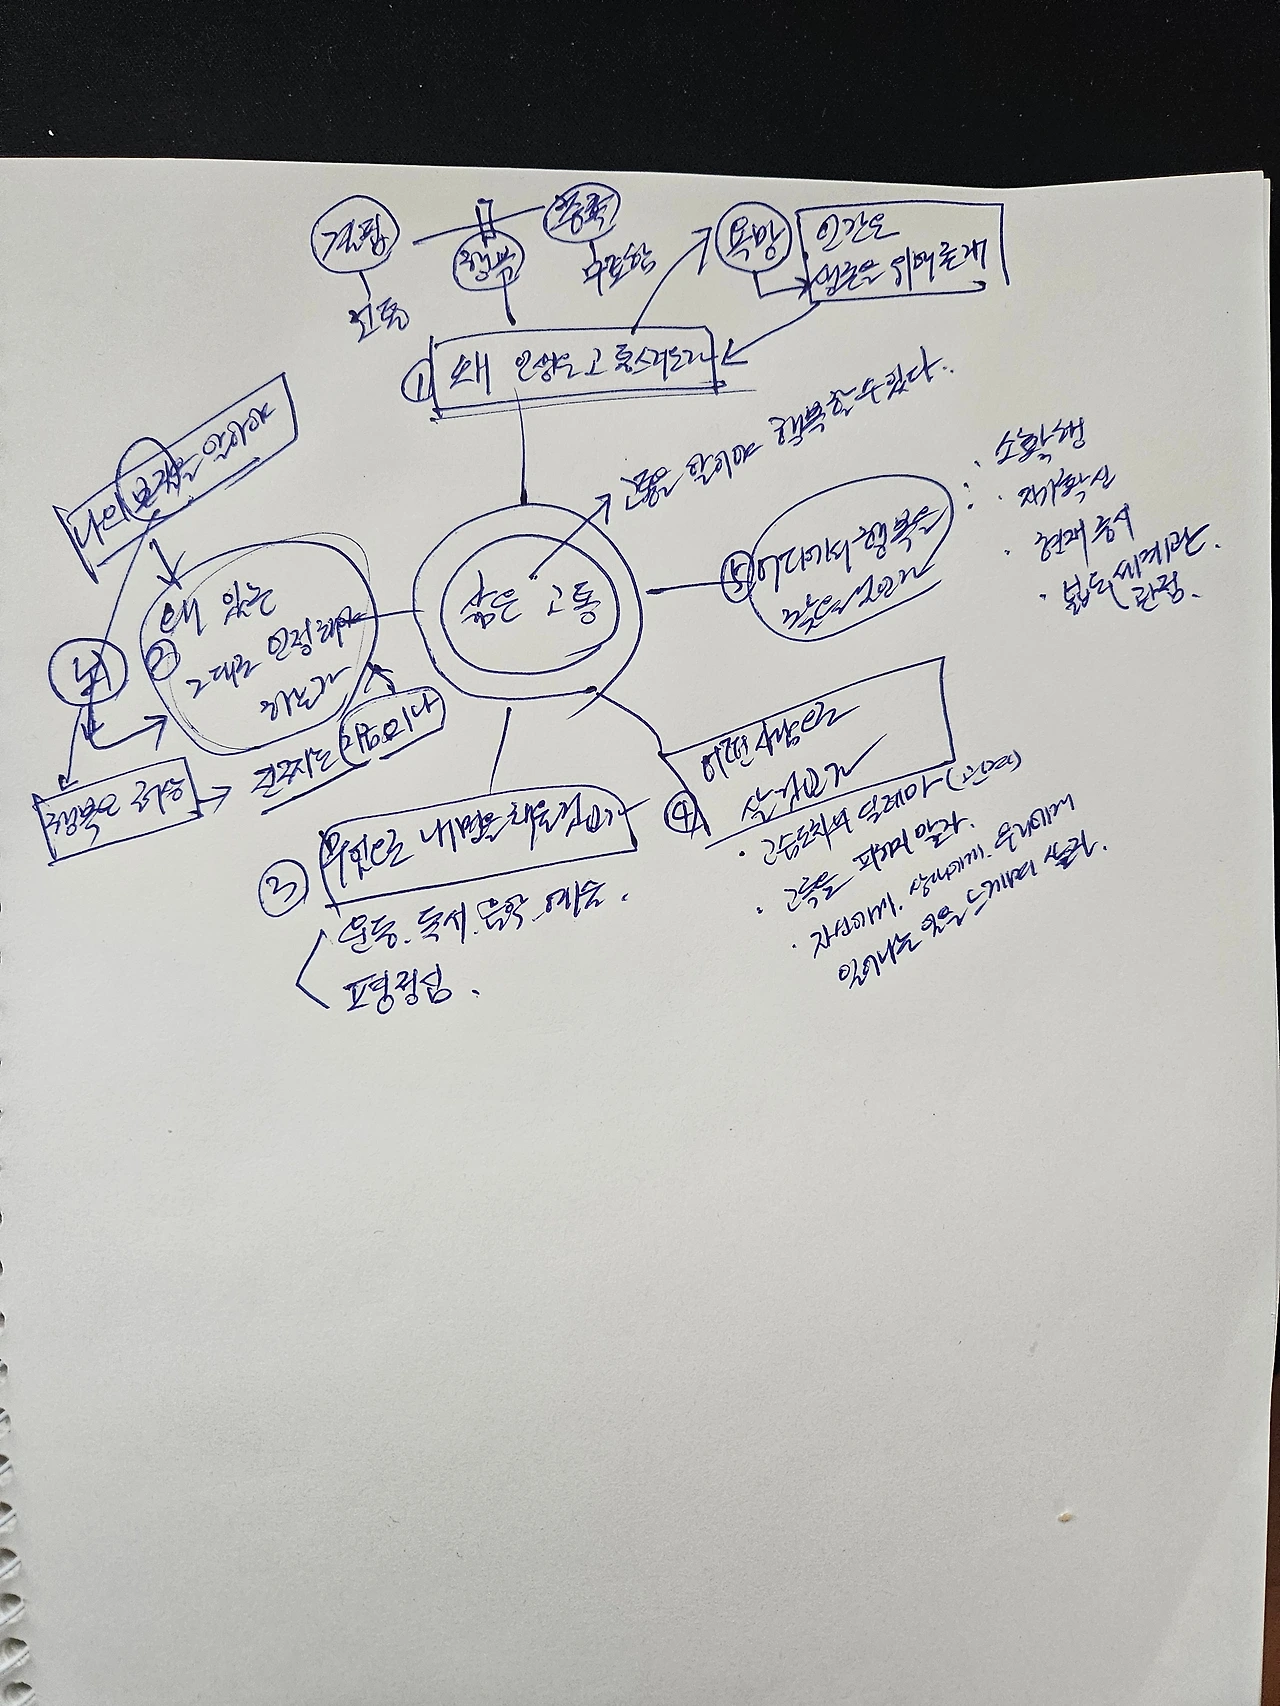 결핍
행복
충족
고통
무료함
욕망
인간은
① 왜 인생은 고통스러운가
고통을 알아야 행복할 수 있다..
삶은 고통
나의 본질을 알아야
왜 있는
② 그대로 인정해야
하는가
행복은
③ 무엇으로 내면을 채울 것인가
운동. 독서. 음악. 예술.
평정심.
④ 어떤 사람으로
살 것인가
· 고슴도치의 딜레마 (관계)
· 고독을 피하지 말라.
· 자신에게. 상대에게. 우리에게
일어나는 일을 느끼며 살라.
⑤ 어디에서 행복을
찾을 것인가
· 소확행
· 자기확신
· 현재 중시
· 넓은 세계관
관점.